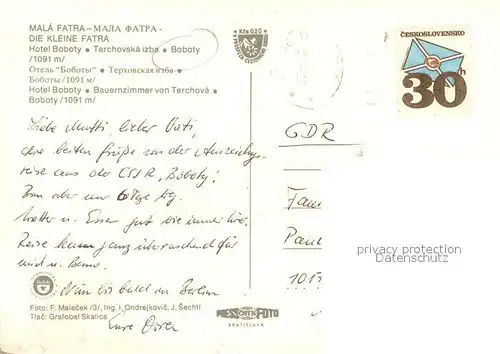 MALÁ FATRA–МАЛА ФАТРА-
DIE KLEINE FATRA
Hotel Boboty • Terchovská izba • Boboty
/1091 m/
Отель "Боботы" • Терховская изба •
Боботы /1091 м/
Hotel Boboty • Bauernzimmer von Terchová •
Boboty /1091 m/
Kčs 0,20
ČESKOSLOVENSKO
30h
GDR
Liebe Mutti, lieber Vati,
die besten Grüße von der Auszeichgs
reise aus der ČSSR, "Boboty".
Bin aber nur 6 Tge
Wetter u. Essen gut wie immer hier.
Reise kam ganz überraschend für
mich u.
Nun bis bald in Berlin
Eure
Fam
Paul
101
privacy protection
Foto: F. Maleček /3/, Ing. I. Ondrejkovič, J. Šechtl
Tlač: Grafobal Skalica
PRESSFOTO
BRATISLAVA